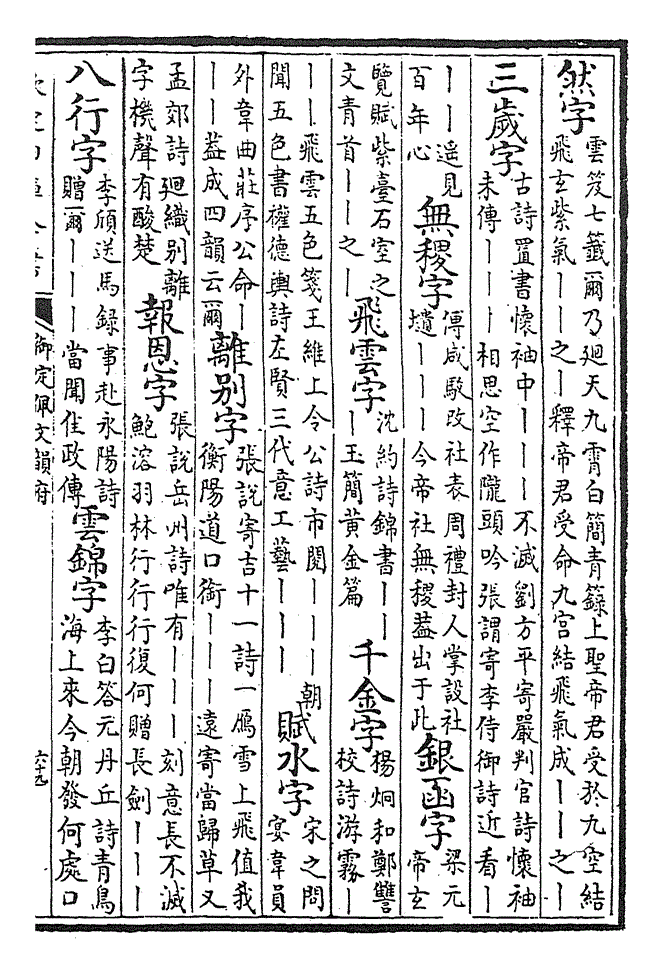 然字
雲笈七籤爾乃廻天九霄白簡青籙上聖帝君受於九空結
飛玄紫氣丨丨之丨釋帝君受命九宫結飛氣成丨丨之丨
三歲字
古詩置書懷袖中丨丨丨不滅劉方平寄嚴判官詩懷袖
未傳丨丨丨相思空作隴頭吟張謂寄李侍御詩近看丨
丨丨遥見
百年心
無稷字
傅咸駮改社表周禮封人掌設社
壝丨丨丨今帝社無稷葢出于此
銀函字
梁元
帝玄
覽賦紫臺石室之
文青首丨丨之丨
飛雲字
沈約詩錦書丨丨
丨玉簡黄金篇
千金字
楊炯和鄭讐
校詩游霧丨
丨丨飛雲五色箋王維上令公詩市閱丨丨丨朝
聞五色書權德輿詩左賢三代意工藝丨丨丨
賦水字
宋之問
宴韋員
外韋曲莊序公命丨
丨丨葢成四韻云爾
離别字
張說寄吉十一詩一鴈雪上飛值我
衡陽道口銜丨丨丨遠寄當歸草又
孟郊詩廻織别離
字機聲有酸楚
報恩字
張說岳州詩唯有丨丨丨刻意長不滅
鮑溶羽林行行行行復何贈長劍丨丨丨
八行字
李頎送馬録事赴永陽詩
贈爾丨丨丨當聞佳政傳
雲錦字
李白答元丹丘詩青鳥
海上來今朝發何處口
欽定四庫全書
御定佩文韻府